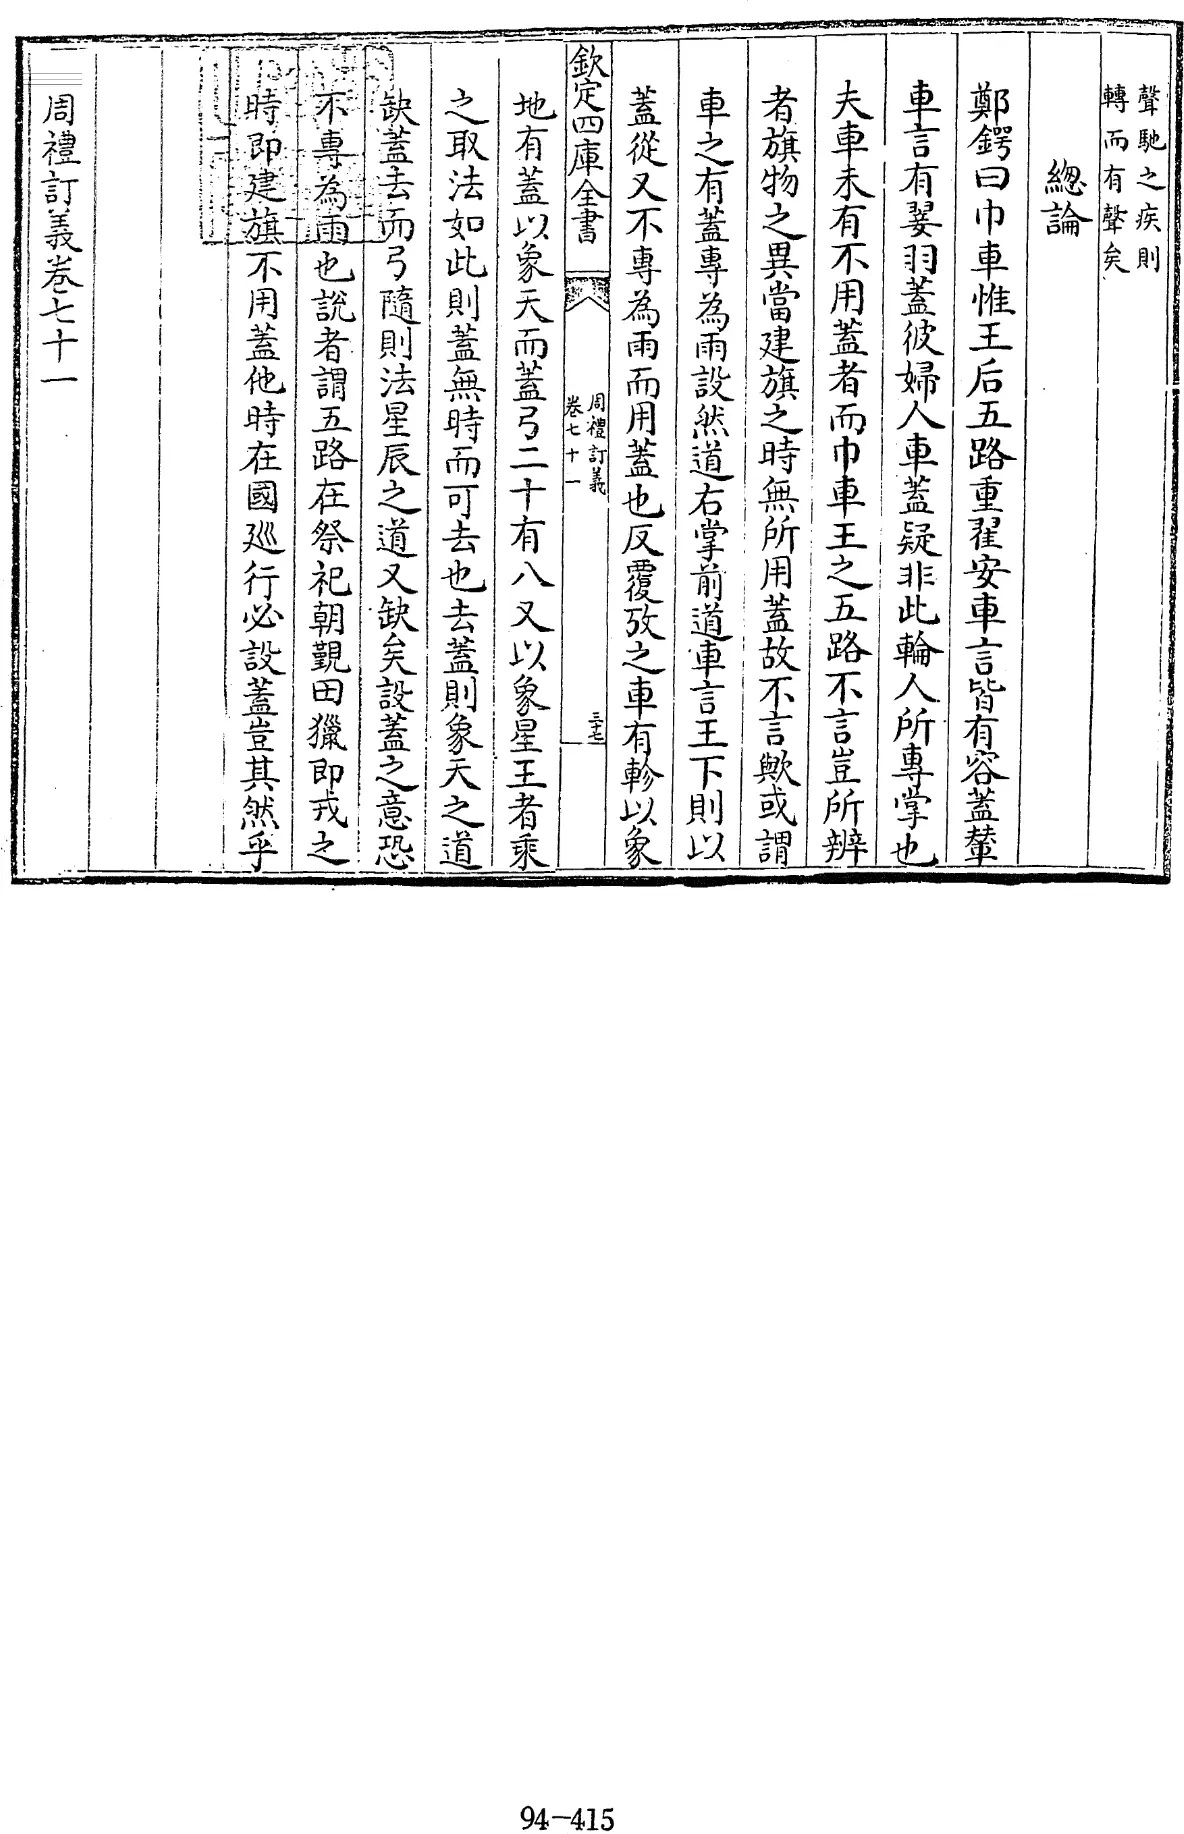 聲馳之疾則
轉而有聲矣
總論
鄭鍔曰巾車惟王后五路重翟安車言皆有容蓋輦
車言有翣羽蓋彼婦人車蓋疑非此輪人所專掌也
夫車未有不用蓋者而巾車王之五路不言豈所辨
者旗物之異當建旗之時無所用蓋故不言歟或謂
車之有蓋專為雨設然道右掌前道車言王下則以
蓋從又不專為雨而用蓋也反覆攷之車有軫以象
欽定四庫全書
周禮訂義
卷七十一
三十七
地有蓋以象天而蓋弓二十有八又以象星王者乘
之取法如此則蓋無時而可去也去蓋則象天之道
缺蓋去而弓隨則法星辰之道又缺矣設蓋之意恐
不專為雨也說者謂五路在祭祀朝覲田獵即戎之
時即建旗不用蓋他時在國廵行必設蓋豈其然乎
周禮訂義卷七十一
94-415